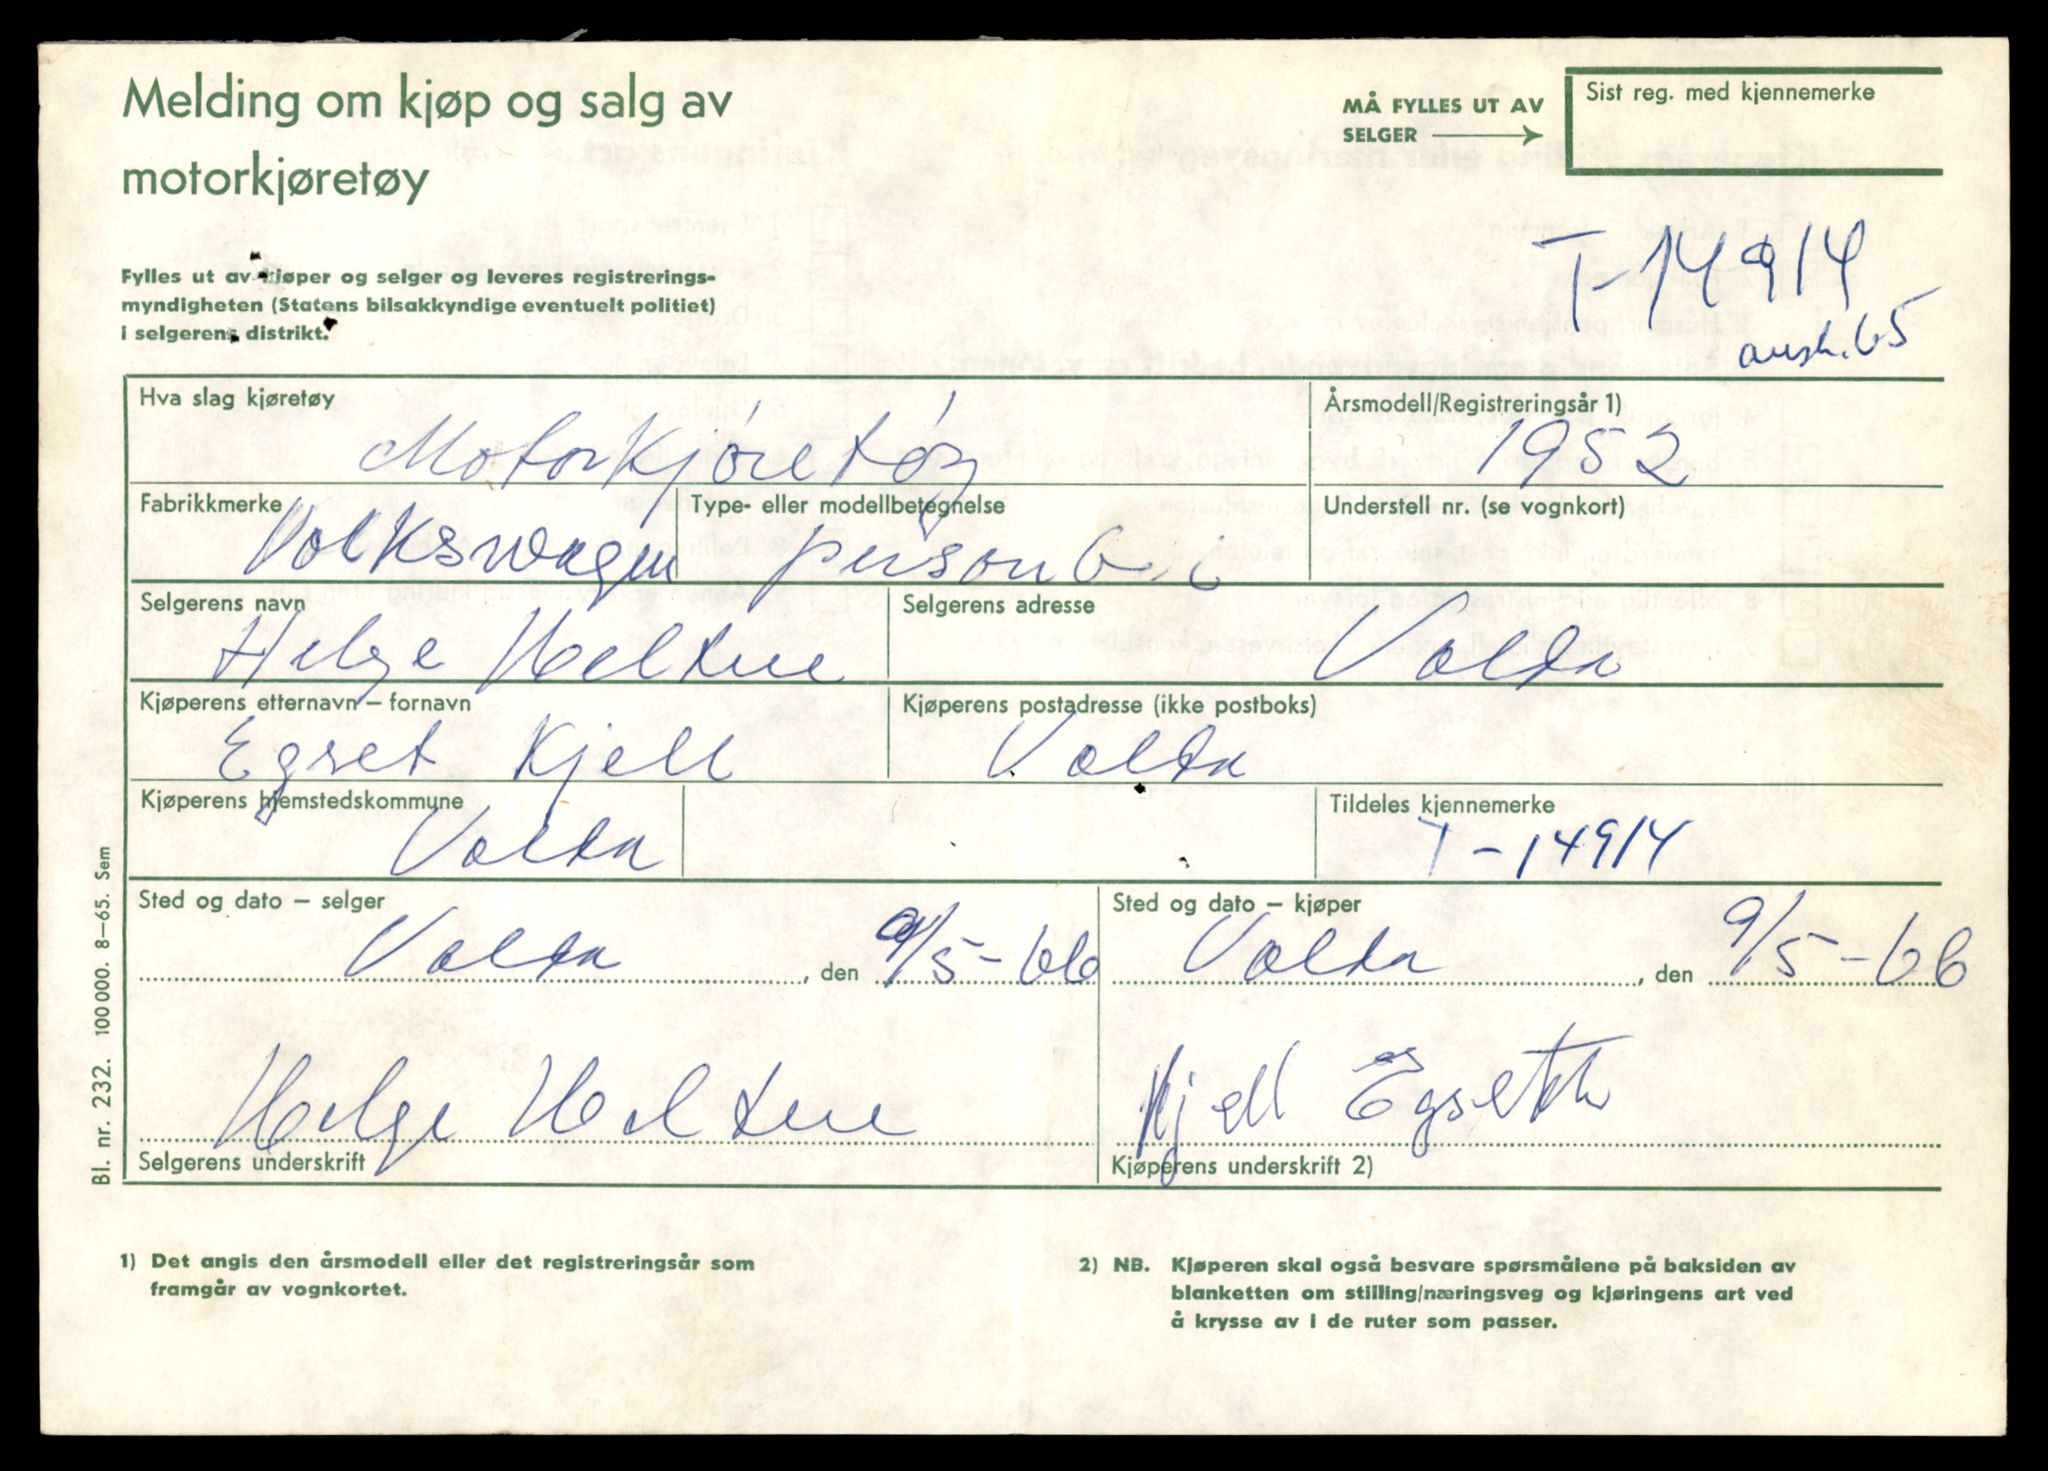 Melding om kjøp og salg av
motorkjøretøy
MÅ FYLLES UT AV
SELGER
Sist reg. med kjennemerke
T-14914
avsk. 65
Fylles ut av kjøper og selger og leveres registrerings-
myndigheten (Statens bilsakkyndige eventuelt politiet)
i selgerens distrikt.
Hva slag kjøretøy
Motorkjøretøy
Årsmodell/Registreringsår 1)
1952
Fabrikkmerke
Volkswagen
Type- eller modellbetegnelse
personbil
Understell nr. (se vognkort)
Selgerens navn
Helge Heltne
Selgerens adresse
Volda
Kjøperens etternavn – fornavn
Egset Kjell
Kjøperens postadresse (ikke postboks)
Volda
Kjøperens hjemstedskommune
Volda
Tildeles kjennemerke
T-14914
Sted og dato – selger
Volda, den 9/5-66
Sted og dato – kjøper
Volda, den 9/5-66
Helge Heltne
Selgerens underskrift
Kjell Egseth
Kjøperens underskrift 2)
Bl. nr. 232. 100 000. 8–65. Sem
1) Det angis den årsmodell eller det registreringsår som
framgår av vognkortet.
2) NB. Kjøperen skal også besvare spørsmålene på baksiden av
blanketten om stilling/næringsveg og kjøringens art ved
å krysse av i de ruter som passer.